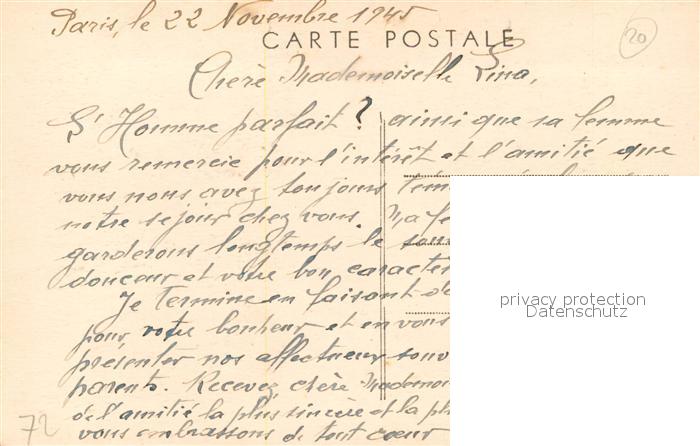 Paris, le 22 Novembre 1945
20
CARTE POSTALE
Chère Mademoiselle Lina,
L'Homme parfait ? ainsi que sa femme
vous remercie pour l'intérêt et l'amitié que
vous nous avez toujours
notre séjour chez vous. Ma
garderons longtemps le
douceur et votre bon
Je termine en faisant
pour votre bonheur et en vous
présenter nos affectueux
parents. Recevez chère
de l'amitié la plus sincère et la
vous embrassons de tout cœur
72
privacy protection
Datenschutz